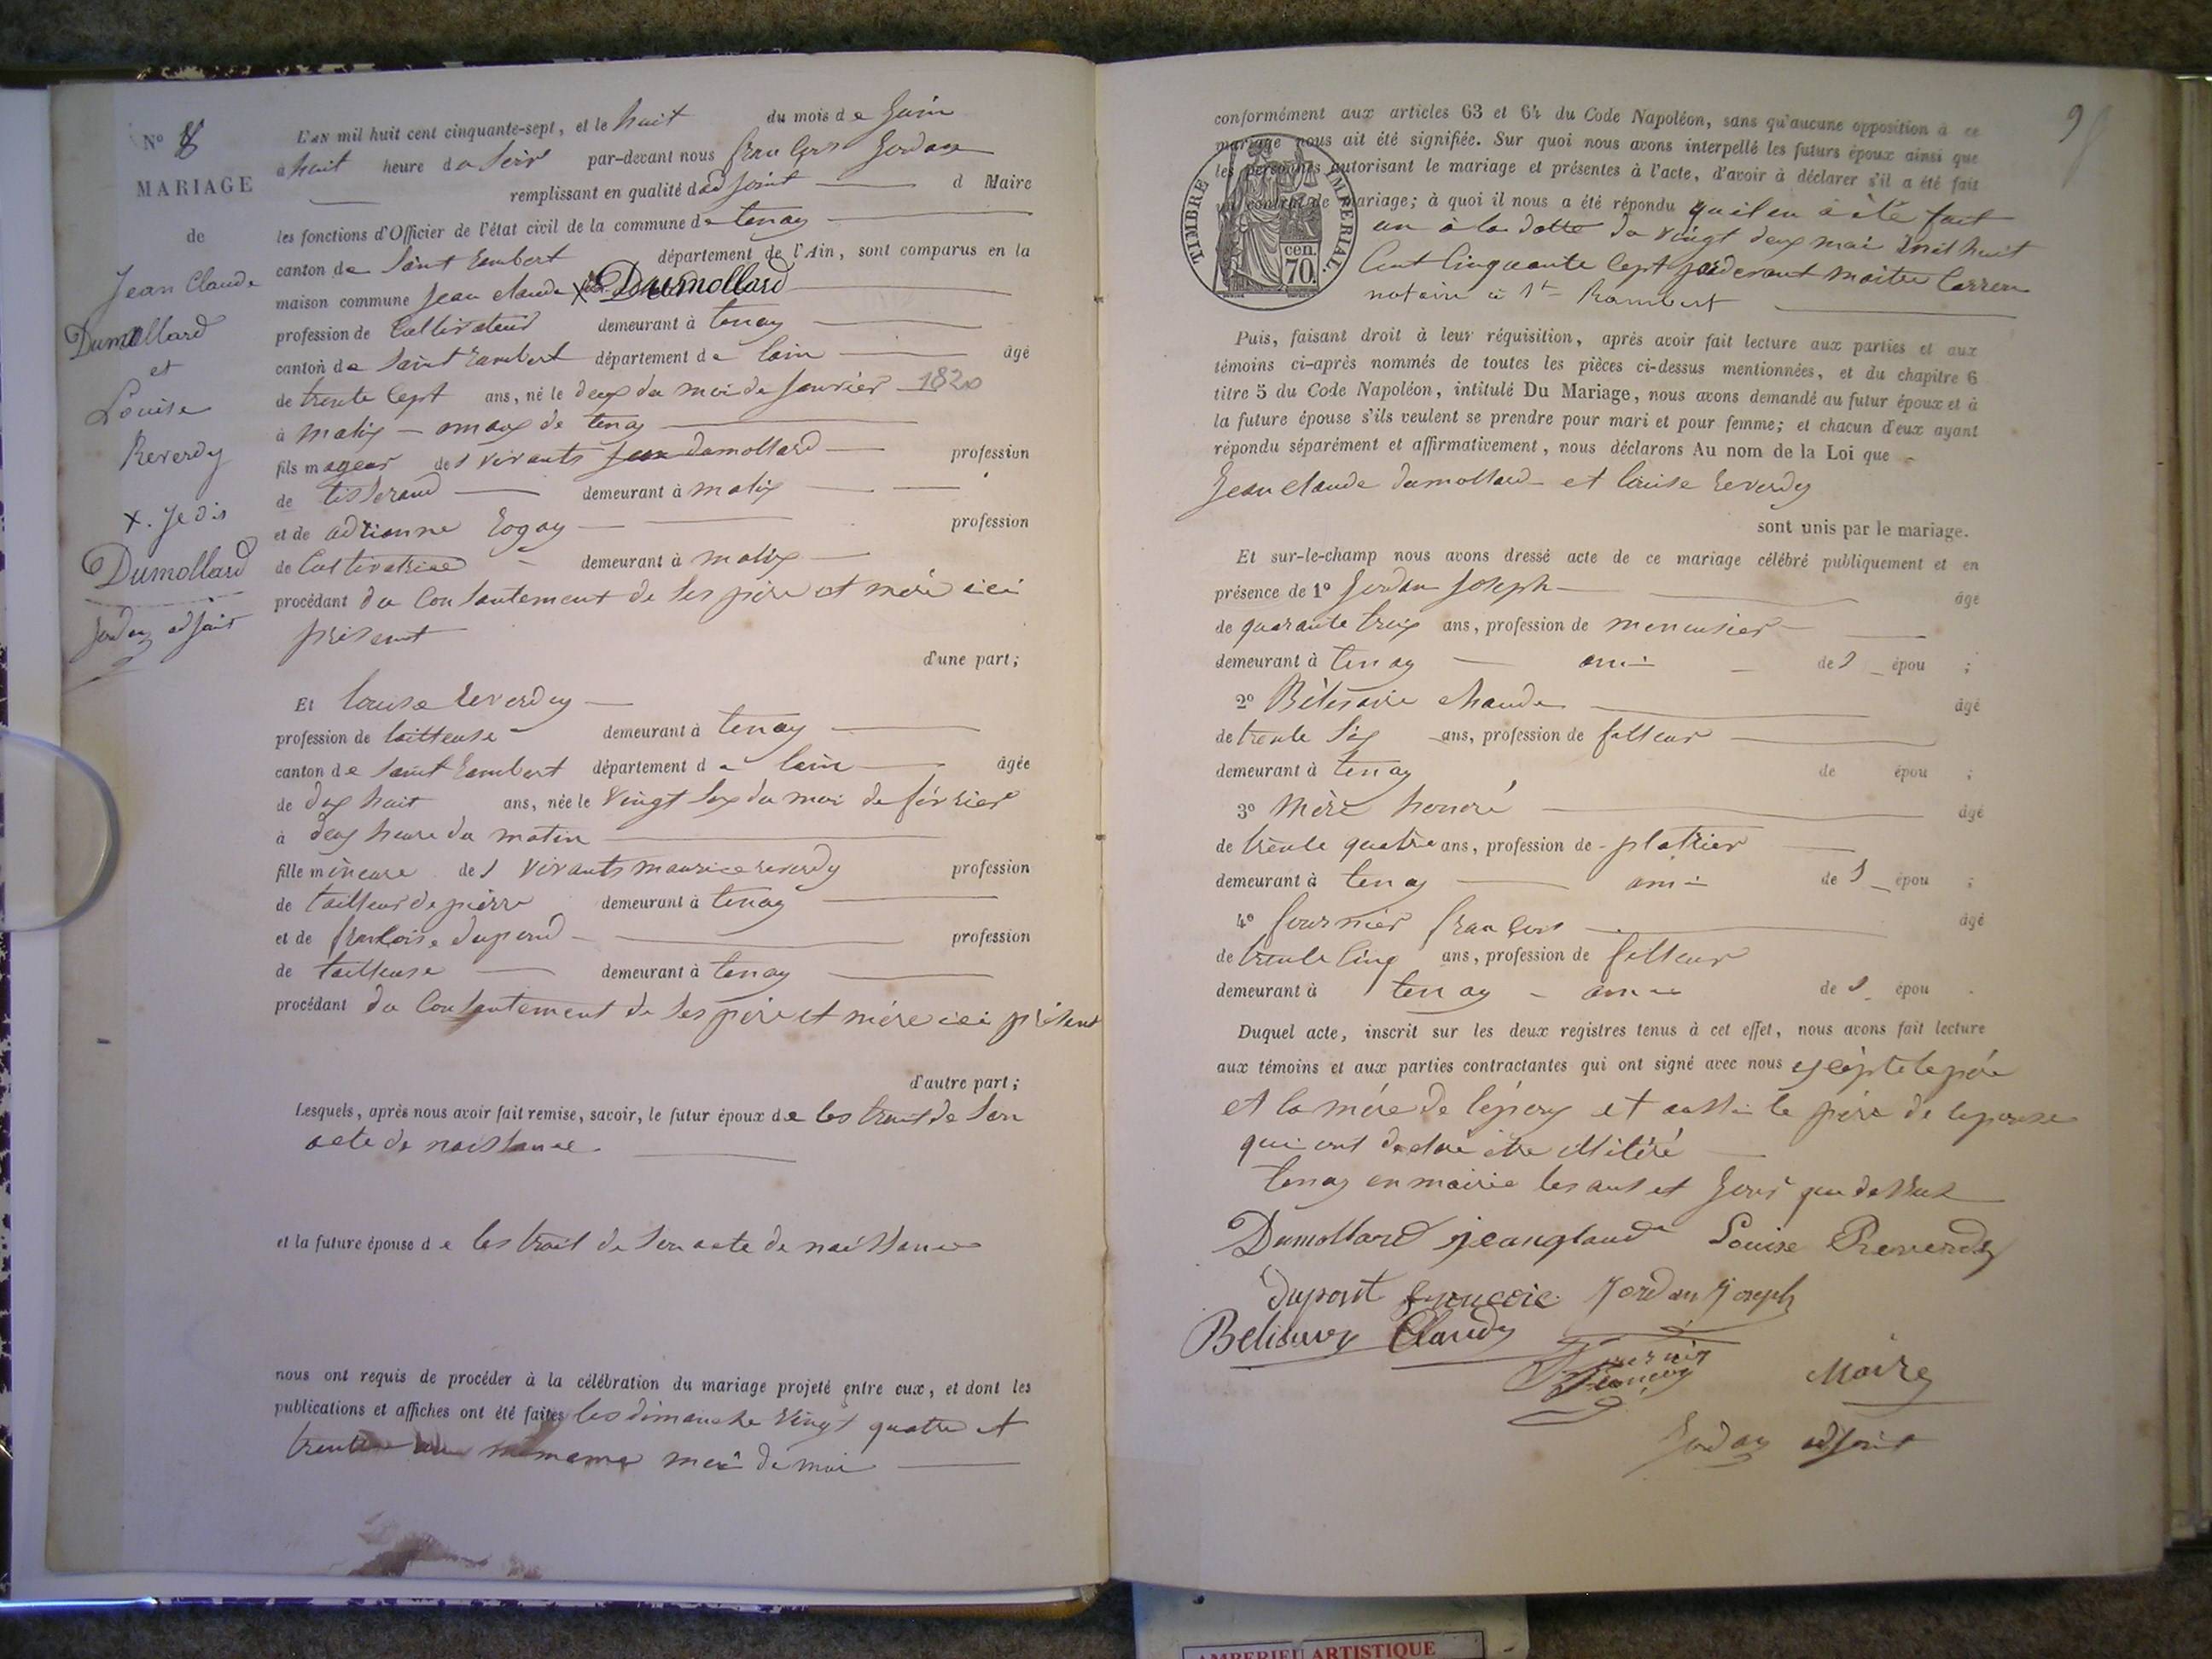 N° 8
MARIAGE
de
Jean Claude
Dumollard
et
Louise
Reverdy
X. Je dis
Dumollard
Jordan adjoint
L'AN mil huit cent cinquante-sept, et le huit du mois de Juin
à huit heure du soir par-devant nous françois Jordan
remplissant en qualité d'adjoint d Maire
les fonctions d'Officier de l'état civil de la commune de tenay
canton de saint Rambert département de l'Ain, sont comparus en la
maison commune Jean claude X Dumollard
profession de Cultivateur demeurant à tenay
canton de saint Rambert département de lain âgé
de trente sept ans, né le deux du moi de Janvier 1820
à matix de tenay
fils mageur des vivants Jean dumollard profession
de tisserand demeurant à matix
et de adrianne Rogay profession
de Cultivatrice demeurant à matix
procédant du Consantement de ses père et mère ici
présent
d'une part;
Et louise Reverdy
profession de tailleuse demeurant à tenay
canton de saint Rambert département de lain âgée
de dix huit ans, née le vingt six du moi de février
à deux heure du matin
fille mineure des vivants maurice reverdy profession
de tailleur de pierre demeurant à tenay
et de francoise dupond profession
de tailleuse demeurant à tenay
procédant du Consantement de ses père et mère ici présent
d'autre part;
Lesquels, après nous avoir fait remise, savoir, le futur époux de les trait de son
acte de naissance
et la future épouse de les trait de son acte de naissance
nous ont requis de procéder à la célébration du mariage projeté entre eux, et dont les
publications et affiches ont été faites les dimanche vingt quatre et
trente de mai
9
conformément aux articles 63 et 64 du Code Napoléon, sans qu'aucune opposition à ce
mariage nous ait été signifiée. Sur quoi nous avons interpellé les futurs époux ainsi que
les personnes autorisant le mariage et présentes à l'acte, d'avoir à déclarer s'il a été fait
un contrat de mariage; à quoi il nous a été répondu qu'il en à été fait
un à la datte du vingt deux mai mil huit
Cent Cinquante sept pardevant maître
notaire à St Rambert
TIMBRE IMPERIAL.
cen.
70.
Puis, faisant droit à leur réquisition, après avoir fait lecture aux parties et aux
témoins ci-après nommés de toutes les pièces ci-dessus mentionnées, et du chapitre 6
titre 5 du Code Napoléon, intitulé Du Mariage, nous avons demandé au futur époux et à
la future épouse s'ils veulent se prendre pour mari et pour femme; et chacun d'eux ayant
répondu séparément et affirmativement, nous déclarons Au nom de la Loi que
Jean claude dumollard et louise Reverdy
sont unis par le mariage.
Et sur-le-champ nous avons dressé acte de ce mariage célébré publiquement et en
présence de 1° Jordan Joseph âgé
de quarante troix ans, profession de menuisier
demeurant à tenay ami des épou ;
2° Bélisaire claude âgé
de trente six ans, profession de filleur
demeurant à tenay de épou ;
3° Mère honoré âgé
de trente quatre ans, profession de platrier
demeurant à tenay ami des épou ;
4° fournier françois âgé
de trente cinq ans, profession de filleur
demeurant à tenay ami des épou .
Duquel acte, inscrit sur les deux registres tenus à cet effet, nous avons fait lecture
aux témoins et aux parties contractantes qui ont signé avec nous excépté le père
et la mère de l'époux et aussi le père de lepouse
qui ont déclaré être illitéré
tenay en mairie les ans et Jour que dessus
Dumollard jeanglaude Louise Reverdy
dupont Jordan Joseph
Claudy
françois
Jordan adjoint
AMBERIEU ARTISTIQUE